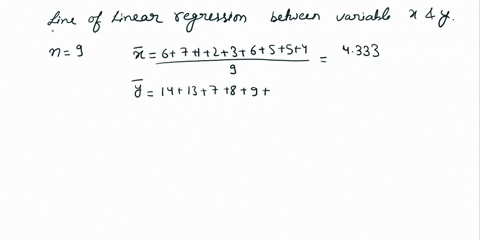 Line of Linear regression between variable x & y.
n = 9 x̄ = 6+7+1+2+3+6+5+5+4 / 9 = 4.333
ȳ = 14+13+7+8+9+